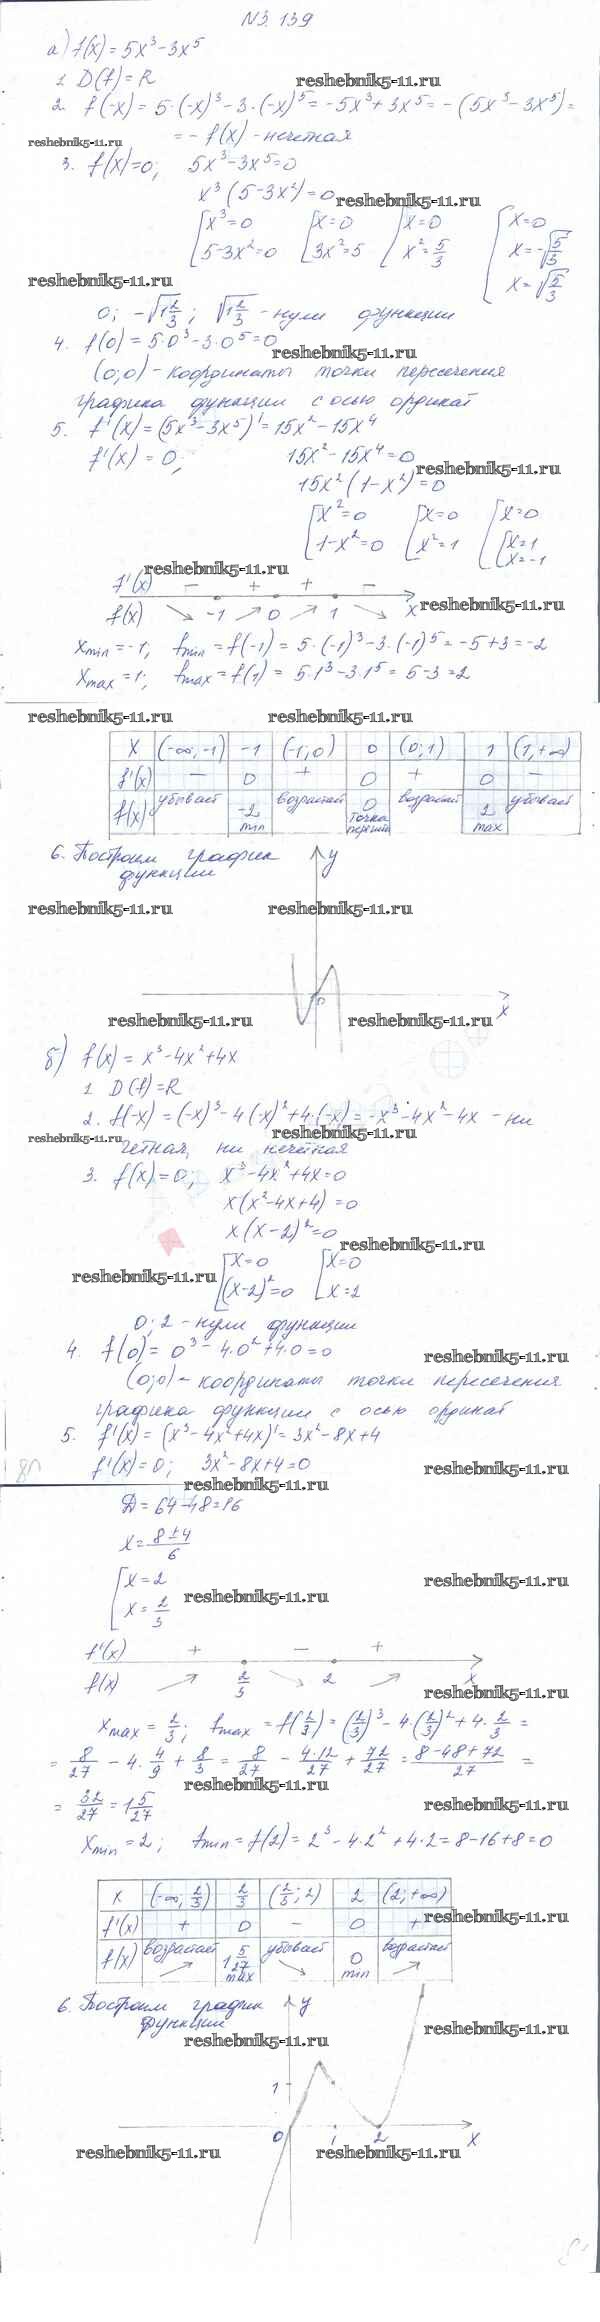 N3. 139
а) f(x) = 5x³ - 3x⁵
1. D(f) = R
reshebnik5-11.ru
2. f(-x) = 5·(-x)³ - 3·(-x)⁵ = -5x³ + 3x⁵ = -(5x³ - 3x⁵) =
reshebnik5-11.ru
= -f(x) - нечетная
3. f(x)=0; 5x³ - 3x⁵ = 0
x³(5 - 3x²) = 0
reshebnik5-11.ru
[x³=0 [x=0 [x=0 [x=0
5-3x²=0 3x²=5 x²=5/3 x=-√5/3
x=√5/3
reshebnik5-11.ru
0; -√1 2/3; √1 2/3 - нули функции
4. f(0) = 5·0³ - 3·0⁵ = 0
reshebnik5-11.ru
(0;0) - координаты точки пересечения
графика функции с осью ординат
5. f'(x) = (5x³ - 3x⁵)' = 15x² - 15x⁴
f'(x) = 0; 15x² - 15x⁴ = 0
reshebnik5-11.ru
15x²(1 - x²) = 0
[x²=0 [x=0 [x=0
1-x²=0 x²=1 [x=1
x=-1
reshebnik5-11.ru
f'(x) - + + -
f(x) -1 0 1 x
reshebnik5-11.ru
xmin = -1; fmin = f(-1) = 5·(-1)³ - 3·(-1)⁵ = -5+3 = -2
xmax = 1; fmax = f(1) = 5·1³ - 3·1⁵ = 5-3 = 2
reshebnik5-11.ru reshebnik5-11.ru
x (-∞,-1) -1 (-1,0) 0 (0;1) 1 (1,+∞)
f'(x) - 0 + 0 + 0 -
f(x) убывает -2 min возрастает 0 точка перегиба возрастает 2 max убывает
6. Построим график
функции
y
reshebnik5-11.ru reshebnik5-11.ru
0
x
reshebnik5-11.ru reshebnik5-11.ru
б) f(x) = x³ - 4x² + 4x
1. D(f) = R
2. f(-x) = (-x)³ - 4(-x)² + 4·(-x) = -x³ - 4x² - 4x - ни
reshebnik5-11.ru reshebnik5-11.ru
четная, ни нечетная
3. f(x) = 0; x³ - 4x² + 4x = 0
x(x² - 4x + 4) = 0
x(x - 2)² = 0
reshebnik5-11.ru
[x=0 [x=0
reshebnik5-11.ru
(x-2)²=0 x=2
0; 2 - нули функции
4. f(0) = 0³ - 4·0² + 4·0 = 0
reshebnik5-11.ru
(0;0) - координаты точки пересечения
графика функции с осью ординат
5. f'(x) = (x³ - 4x² + 4x)' = 3x² - 8x + 4
f'(x) = 0; 3x² - 8x + 4 = 0
reshebnik5-11.ru
80
reshebnik5-11.ru
D = 64 - 48 = 16
x = 8±4/6
[x=2
x=2/3
reshebnik5-11.ru reshebnik5-11.ru
f'(x) + - +
f(x) 2/3 2 x
reshebnik5-11.ru
xmax = 2/3; fmax = f(2/3) = (2/3)³ - 4·(2/3)² + 4·2/3 =
= 8/27 - 4·4/9 + 8/3 = 8/27 - 4·12/27 + 72/27 = 8-48+72/27 =
reshebnik5-11.ru
= 32/27 = 1 5/27
reshebnik5-11.ru
xmin = 2; fmin = f(2) = 2³ - 4·2² + 4·2 = 8-16+8 = 0
x (-∞, 2/3) 2/3 (2/3; 2) 2 (2;+∞)
f'(x) + 0 - 0 +
reshebnik5-11.ru
f(x) возрастает 1 5/27 max убывает 0 min возрастает
6. Построим график
функции
y
reshebnik5-11.ru
reshebnik5-11.ru
1
0 1 2 x
reshebnik5-11.ru reshebnik5-11.ru